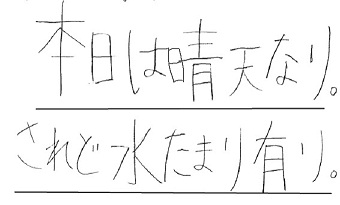 本日は晴天なり。
されど水たまり有り。